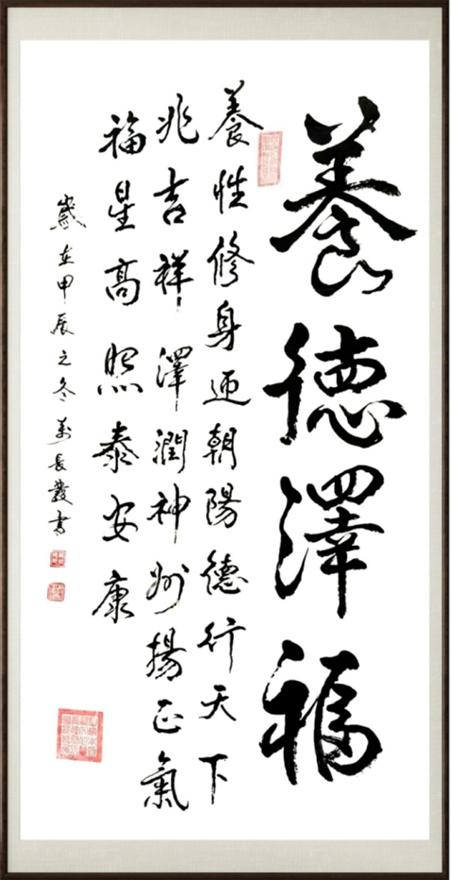 養德澤福
養性修身迎朝陽德行天下
兆吉祥澤潤神州揚正氣
福星高照泰安康
歲在甲辰之冬萬長發書